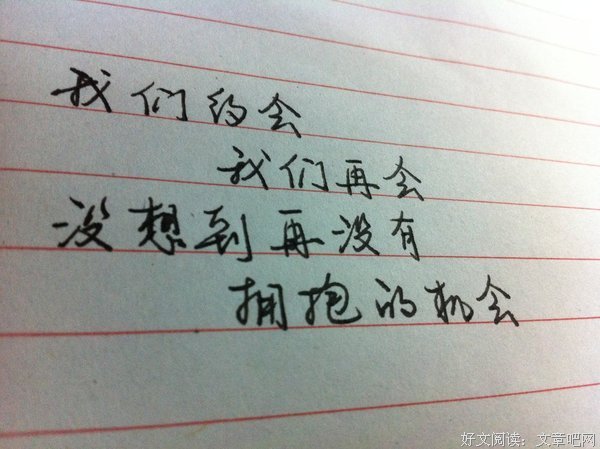 我们约会
我们再会
没想到再没有
拥抱的机会
好文阅读：文章吧网